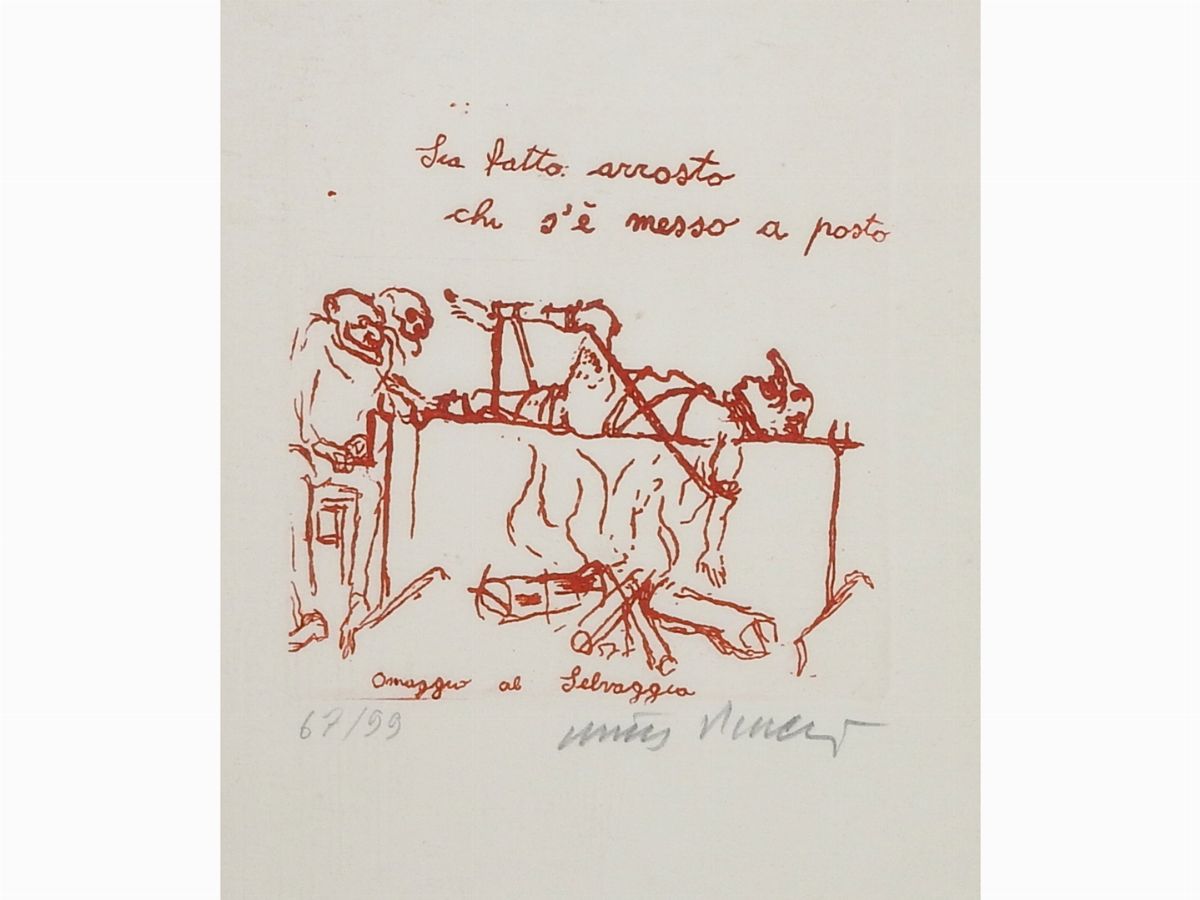 Sia fatto arrosto
chi s'è messo a posto
Omaggio al Selvaggio
67/99